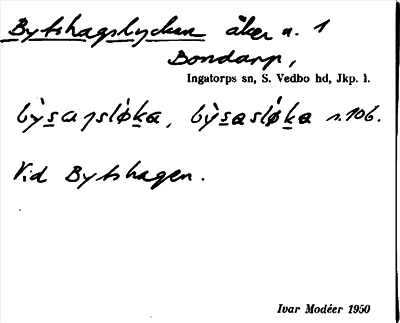 Bytshagslyckan åker n. 1
Bondarp,
Ingatorps sn, S. Vedbo hd, Jkp. l.
bỳsagsløka, bỳsasløka s. 106.
Vid Bytshagen.
Ivar Modéer 1950